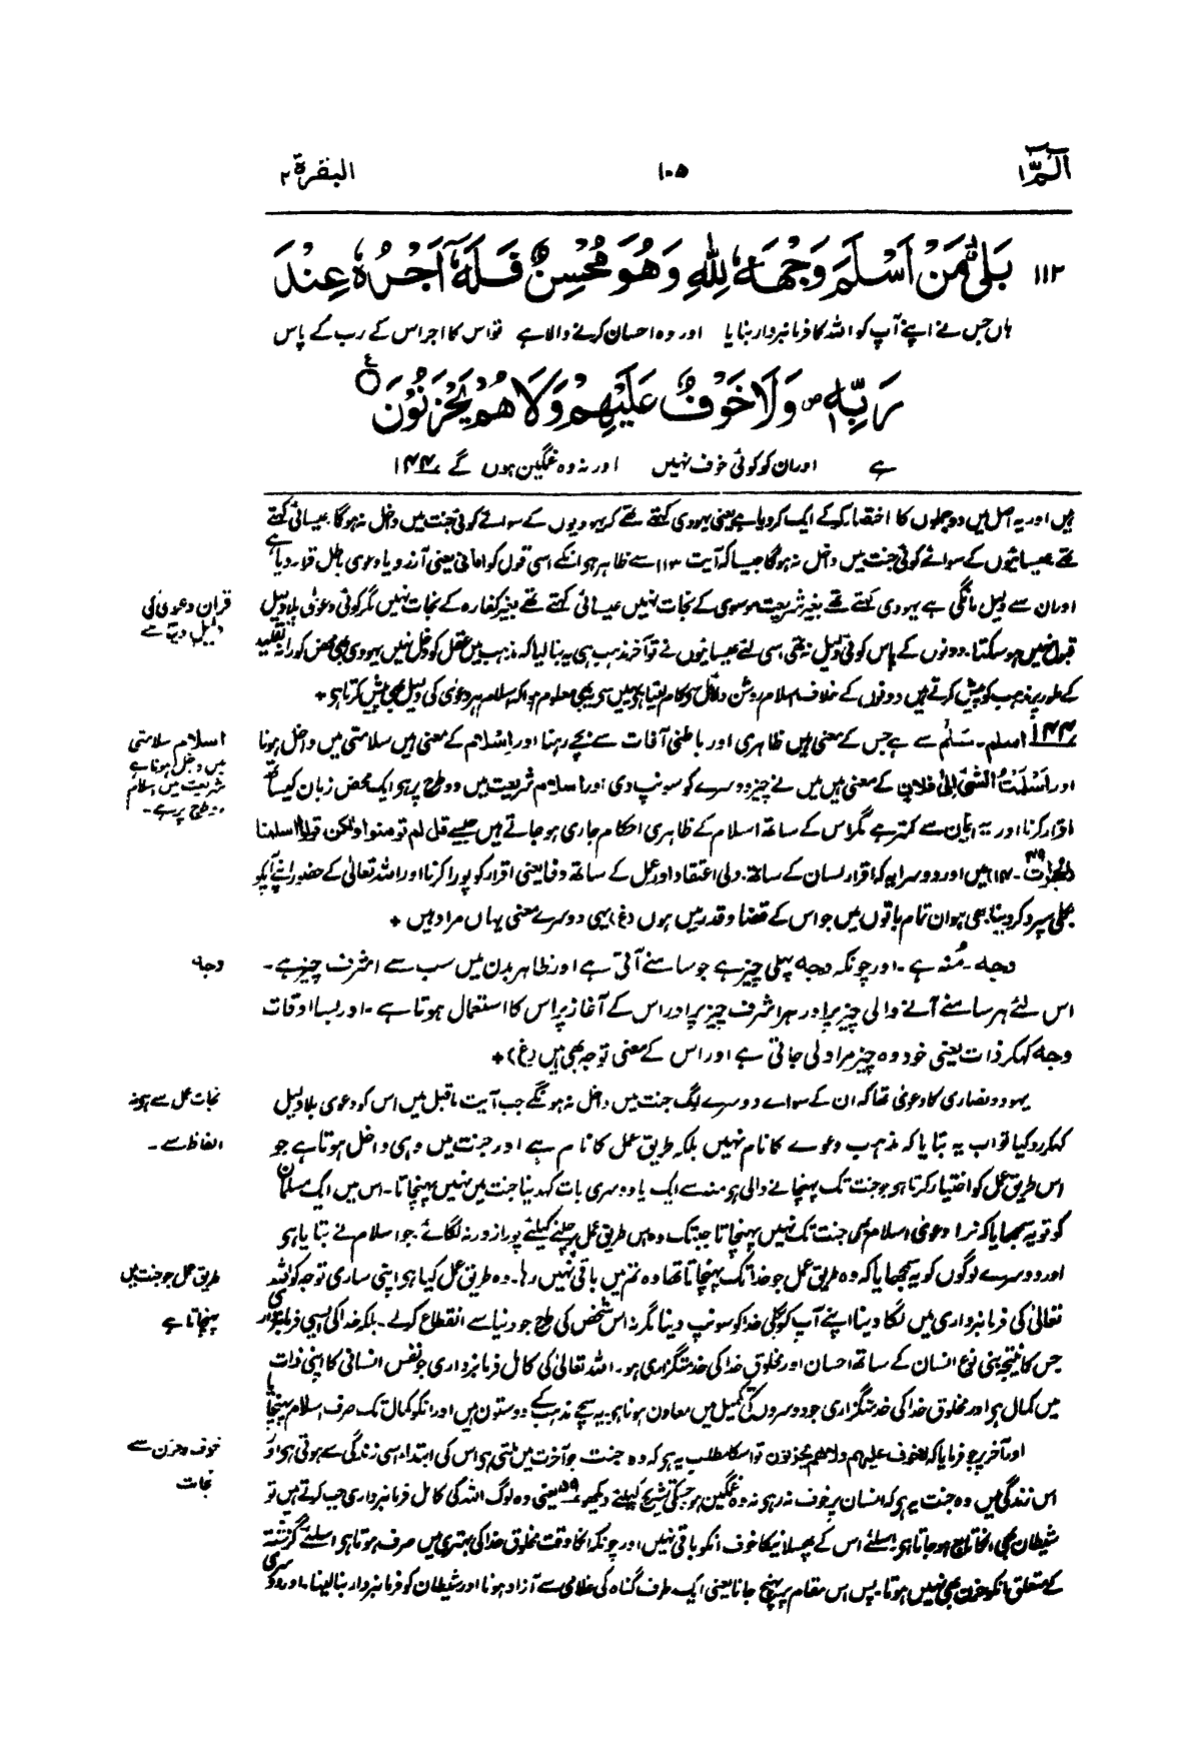 الٓمّٓ ۱
۱۰۵
البقرۃ ۲
۱۱۲ بَلٰى مَنْ اَسْلَمَ وَجْهَهٗ لِلّٰهِ وَهُوَ مُحْسِنٌ فَلَهٗٓ اَجْرُهٗ عِنْدَ
ہاں جس نے اپنے آپ کو اللہ کا فرمانبردار بنایا اور وہ احسان کرنے والا ہے تو اس کا اجر اس کے رب کے پاس
رَبِّهٖ ص وَلَا خَوْفٌ عَلَيْهِمْ وَلَا هُمْ يَحْزَنُوْنَ ۝ ع
ہے اور ان کو کوئی خوف نہیں اور نہ وہ غمگین ہوں گے ۱۴۴
ہیں اور یہ اصل میں دو جملوں کا اختصار کرکے ایک کردیا ہے یعنی یہودی کہتے تھے کہ یہودیوں کے سوائے کوئی جنت میں داخل نہ ہوگا۔ عیسائی کہتے
تھے عیسائیوں کے سوائے کوئی جنت میں داخل نہ ہوگا جیسا کہ آیت ۱۱۳ سے ظاہر ہے انکے اسی قول کو امانی یعنی آرزو یا دعوی باطل قرار دیا ہے
اور ان سے دلیل مانگی ہے یہودی کہتے تھے بغیر شریعت موسوی کے نجات نہیں عیسائی کہتے تھے بغیر کفارہ کے نجات نہیں مگر کوئی دعویٰ بلا دلیل
قرآن دعویٰ کی
دلیل دیتا ہے
قبول نہیں ہوسکتا۔ دونوں کے پاس کوئی دلیل نہ تھی اسی لئے عیسائیوں نے تو آخر مذہب ہی یہ بنا لیا کہ مذہب میں عقل کو دخل نہیں یہودی بھی محض کورانہ تقلید
کے طور پر مذہب کو پیش کرتے ہیں دونوں کے خلاف اسلام روشن دلائل سے کام لیتا ہے یہیں سے یہ بھی معلوم ہوا کہ اسلام ہر دعویٰ کی دلیل بھی پیش کرتا ہے +
۱۴۴ اسلم۔ سَلْم سے ہے جس کے معنی ہیں ظاہری اور باطنی آفات سے بچے رہنا اور اسلام کے معنی ہیں سلامتی میں داخل ہونا
اسلام سلامتی
میں داخل ہونا ہے
شریعت میں اسلام
دو طرح پر ہے۔
اور اَسْلَمْتُ الشَّئَ اِلیٰ فلانٍ کے معنی ہیں میں نے چیز دوسرے کو سونپ دی اور اسلام شریعت میں دو طرح پر ہے ایک محض زبان کیساتھ
اقرار کرنا اور یہ ایمان سے کمتر ہے مگر اس کے ساتھ اسلام کے ظاہری احکام جاری ہو جاتے ہیں جیسے قل لم تومنوا ولکن قولوا اسلمنا
الحجرات ۴۹۔ ۱۴ میں اور دوسرا یہ کہ اقرار لسان کے ساتھ دلی اعتقاد اور عمل کے ساتھ وفا یعنی اقرار کو پورا کرنا اور اللہ تعالیٰ کے حضور اپنے آپکو
بکلی سپرد کر دینا بھی ہو ان تمام باتوں میں جو اس کے قضا و قدر میں ہوں (غ) یہی دوسرے معنی یہاں مراد ہیں +
وجہ۔ مُنہ ہے۔ اور چونکہ وجہ پہلی چیز ہے جو سامنے آتی ہے اور ظاہر بدن میں سب سے اشرف چیز ہے۔
وجہ
اس لئے ہر سامنے آنے والی چیز پر اور ہر اشرف چیز پر اور اس کے آغاز پر اس کا استعمال ہوتا ہے۔ اور بسا اوقات
وجہ کہکر ذات یعنی خود وہ چیز مراد لی جاتی ہے اور اس کے معنی توجہ بھی ہیں (غ) +
یہود و نصاری کا دعویٰ تھا کہ ان کے سوائے دوسرے لوگ جنت میں داخل نہ ہونگے جب آیت ماقبل میں اس کو دعوی بلا دلیل
نجات عمل سے ہے نہ
الفاظ سے۔
کہکر رد کیا تو اب یہ بتایا کہ مذہب دعوے کا نام نہیں بلکہ طریق عمل کا نام ہے اور جنت میں وہی داخل ہوتا ہے جو
اس طریق عمل کو اختیار کرتا ہو جو جنت تک پہنچانے والی ہو منہ سے ایک یا دوسری بات کہدینا جنت میں نہیں پہنچاتا۔ اس میں ایک مسلمان
کو تو یہ سمجھایا کہ نرا دعویٰ اسلام بھی جنت تک نہیں پہنچاتا جب تک وہ اس طریق عمل پر چلنے کیلئے پورا زور نہ لگائے جو اسلام نے بتایا ہے
اور دوسرے لوگوں کو یہ سمجھایا کہ وہ طریق عمل جو خدا تک پہنچاتا تھا وہ تم میں باقی نہیں رہا۔ وہ طریق عمل کیا ہے اپنی ساری توجہ کو اللہ
طریق عمل جو جنت میں
پہنچاتا ہے
تعالیٰ کی فرمانبرداری میں لگا دینا اپنے آپ کو بکلی خدا کو سونپ دینا مگر نہ اس شخص کی طرح جو دنیا سے انقطاع کرلے۔ بلکہ خدا کی ایسی فرمانبرداری
جس کا نتیجہ بنی نوع انسان کے ساتھ احسان اور مخلوق خدا کی خدمتگزاری ہو۔ اللہ تعالیٰ کی کامل فرمانبرداری جو نفس انسانی کا اپنی ذات
میں کمال ہے اور مخلوق خدا کی خدمتگزاری جو دوسروں کی تکمیل میں معاون ہونا ہے یہ سچے مذہب کے دو ستون ہیں اور انکو کمال تک صرف اسلام پہنچاتا
اور آخر پر جو فرمایا کہ لاخوف علیہم ولاھم یحزنون تو اسکا مطلب یہ ہے کہ وہ جنت جو آخرت میں ملتی ہے اس کی ابتداء اسی زندگی سے ہوتی ہے اور
خوف و حزن سے
نجات
اس زندگی میں وہ جنت یہ ہے کہ انسان پر خوف نہ رہے نہ وہ غمگین ہو جسکی تشریح کیلئے دیکھو ۵۹ یعنی وہ لوگ اللہ کی کامل فرمانبرداری جب کرتے ہیں تو
شیطان بھی انکا تابع ہو جاتا ہے اسلئے اس کے پھسلانیکا خوف انکو باقی نہیں اور چونکہ انکا وقت مخلوق خدا کی بہتری میں صرف ہوتا ہے اسلئے گزشتہ
کے متعلق انکو حزن بھی نہیں ہوتا۔ پس اس مقام پر پہنچ جانا یعنی ایک طرف گناہ کی غلامی سے آزاد ہونا اور شیطان کو فرمانبردار بنا لینا۔ اور دوسری